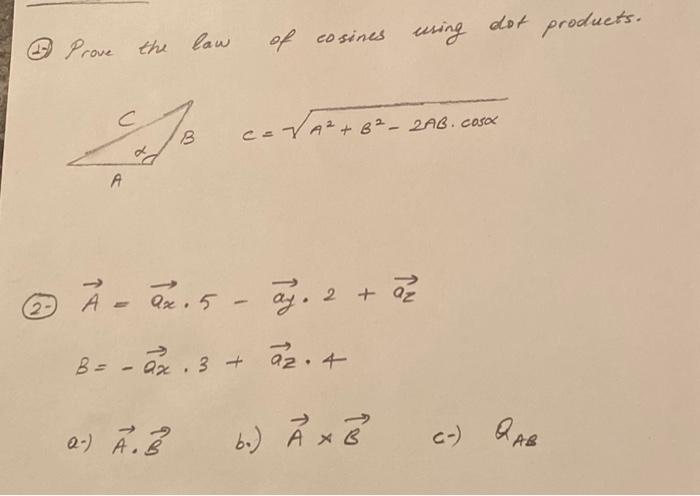 1-) Prove the law of cosines using dot products.
C
α
B
A
c = √A² + B² - 2AB. cosα
2-) A⃗ = a⃗x . 5 - a⃗y . 2 + a⃗z
B = - a⃗x . 3 + a⃗z . 4
a-) A⃗ . B⃗ b.) A⃗ × B⃗ c-) QAB